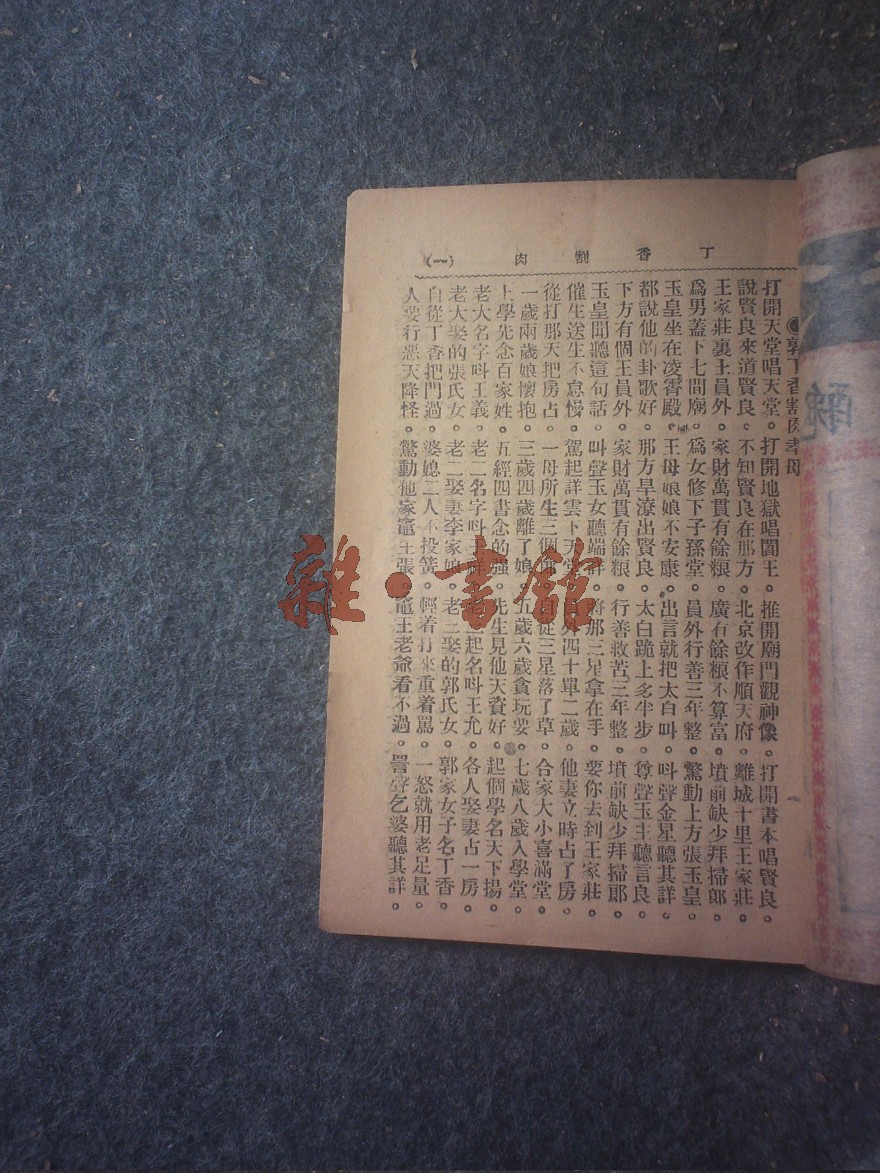 丁香割肉 (一)
郭丁香割肉孝母
打開天堂唱天堂。打開地獄唱閻王。推開廟門觀神像。打開書本唱賢良。
說賢良來道賢良。不知賢良在那方。北京改作順天府。離城十里王家莊。
王家莊裏王員外。家財萬貫有餘粮。廣有餘粮不算富。墳前缺少拜掃郎。
爲男蓋下七間廟。爲女修下子孫堂。員外行善三年整。驚動上方張玉皇。
玉皇坐在凌霄殿。王母娘娘不安康。出言就把太白叫。呌聲金星聽其詳。
都說他的卦歌好。那方旱潦出賢良。太白跪上多半步。尊聲玉主聽言良。
下方有個王員外。家財萬貫有餘粮。行善救苦三年整。墳前缺少拜掃郎。
玉皇聞聽這句話。叫聲玉女聽端詳。將那三星拿在手。要你去到王家莊。
催生送生不怠慢。駕起詳雲下天堂。員外四十單二歲。他妻立時占了房。
從打那天把房占。一母所生三個。自從三星落了草。合家大小喜滿堂。
一歲兩歲娘懷抱。三歲四歲離了娘。五歲六歲貪玩耍。七歲八歲入學堂。
上學先念百家姓。五經四書念的强。先生見他天資好。起個學名天下揚。
老大名字呌王義。老二名字呌王祥。老三起名呌王尤。各人娶妻占一房。
老大娶的張氏女。老二娶妻李家娘。老三娶的郭氏女。郭家女子名丁香。
自從丁香把門過。婆媳二人不投簧。輕着打來重着罵。一怒就用老足量。
人要行惡天降怪。驚動他家竈王張。竈王老爺看不過。罵聲乞婆聽其詳。
雜·書館